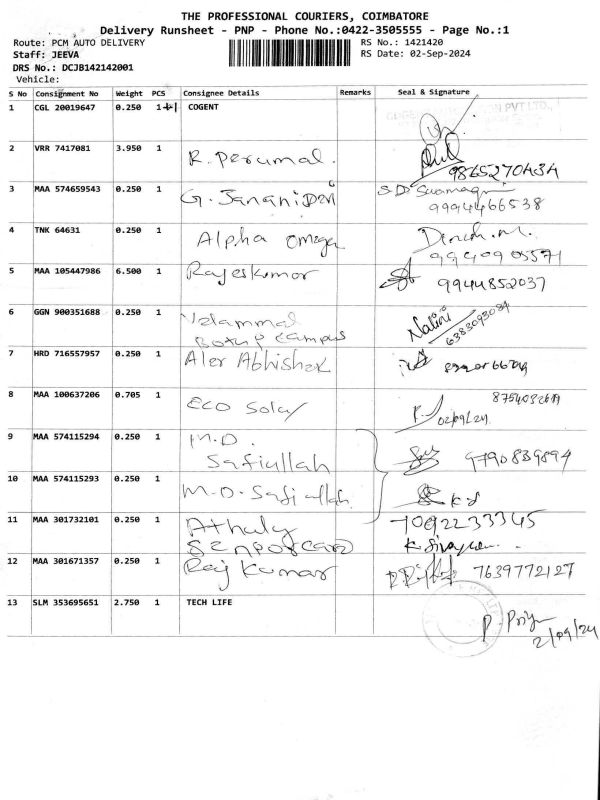 THE PROFESSIONAL COURIERS, COIMBATORE
Delivery Runsheet - PNP - Phone No.:0422-3505555 - Page No.:1
Route: PCM AUTO DELIVERY RS No.: 1421420
Staff: JEEVA RS Date: 02-Sep-2024
DRS No.: DCJB142142001
Vehicle:
S No Consignment No Weight PCS Consignee Details Remarks Seal & Signature
1 CGL 20019647 0.250 1+1 COGENT
2 VRR 7417081 3.950 1 R. Perumal. 9865270434
3 MAA 574659543 0.250 1 G. Janani Devi
9994466538
4 TNK 64631 0.250 1 Alpha omega Dinesh.M.
9940905571
5 MAA 105447986 6.500 1 Rajeskumar 9944852037
6 GGN 900351688 0.250 1 Velammal Nalini
Campus 6383093084
7 HRD 716557957 0.250 1 Abhishek
8 MAA 100637206 0.705 1 ECO Solar
02/09/24
9 MAA 574115294 0.250 1 M.D.
Safiullah 9790839894
10 MAA 574115293 0.250 1 M.D. Safiullah
11 MAA 301732101 0.250 1 7092233345
12 MAA 301671357 0.250 1 Raj Kumar 7639772127
13 SLM 353695651 2.750 1 TECH LIFE P. Priya
2/09/24